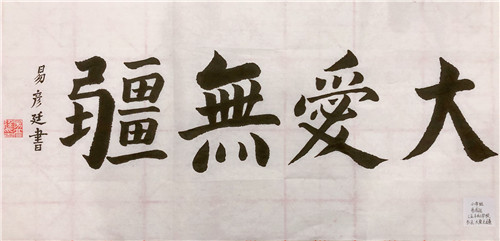 大愛無疆
易彦廷書